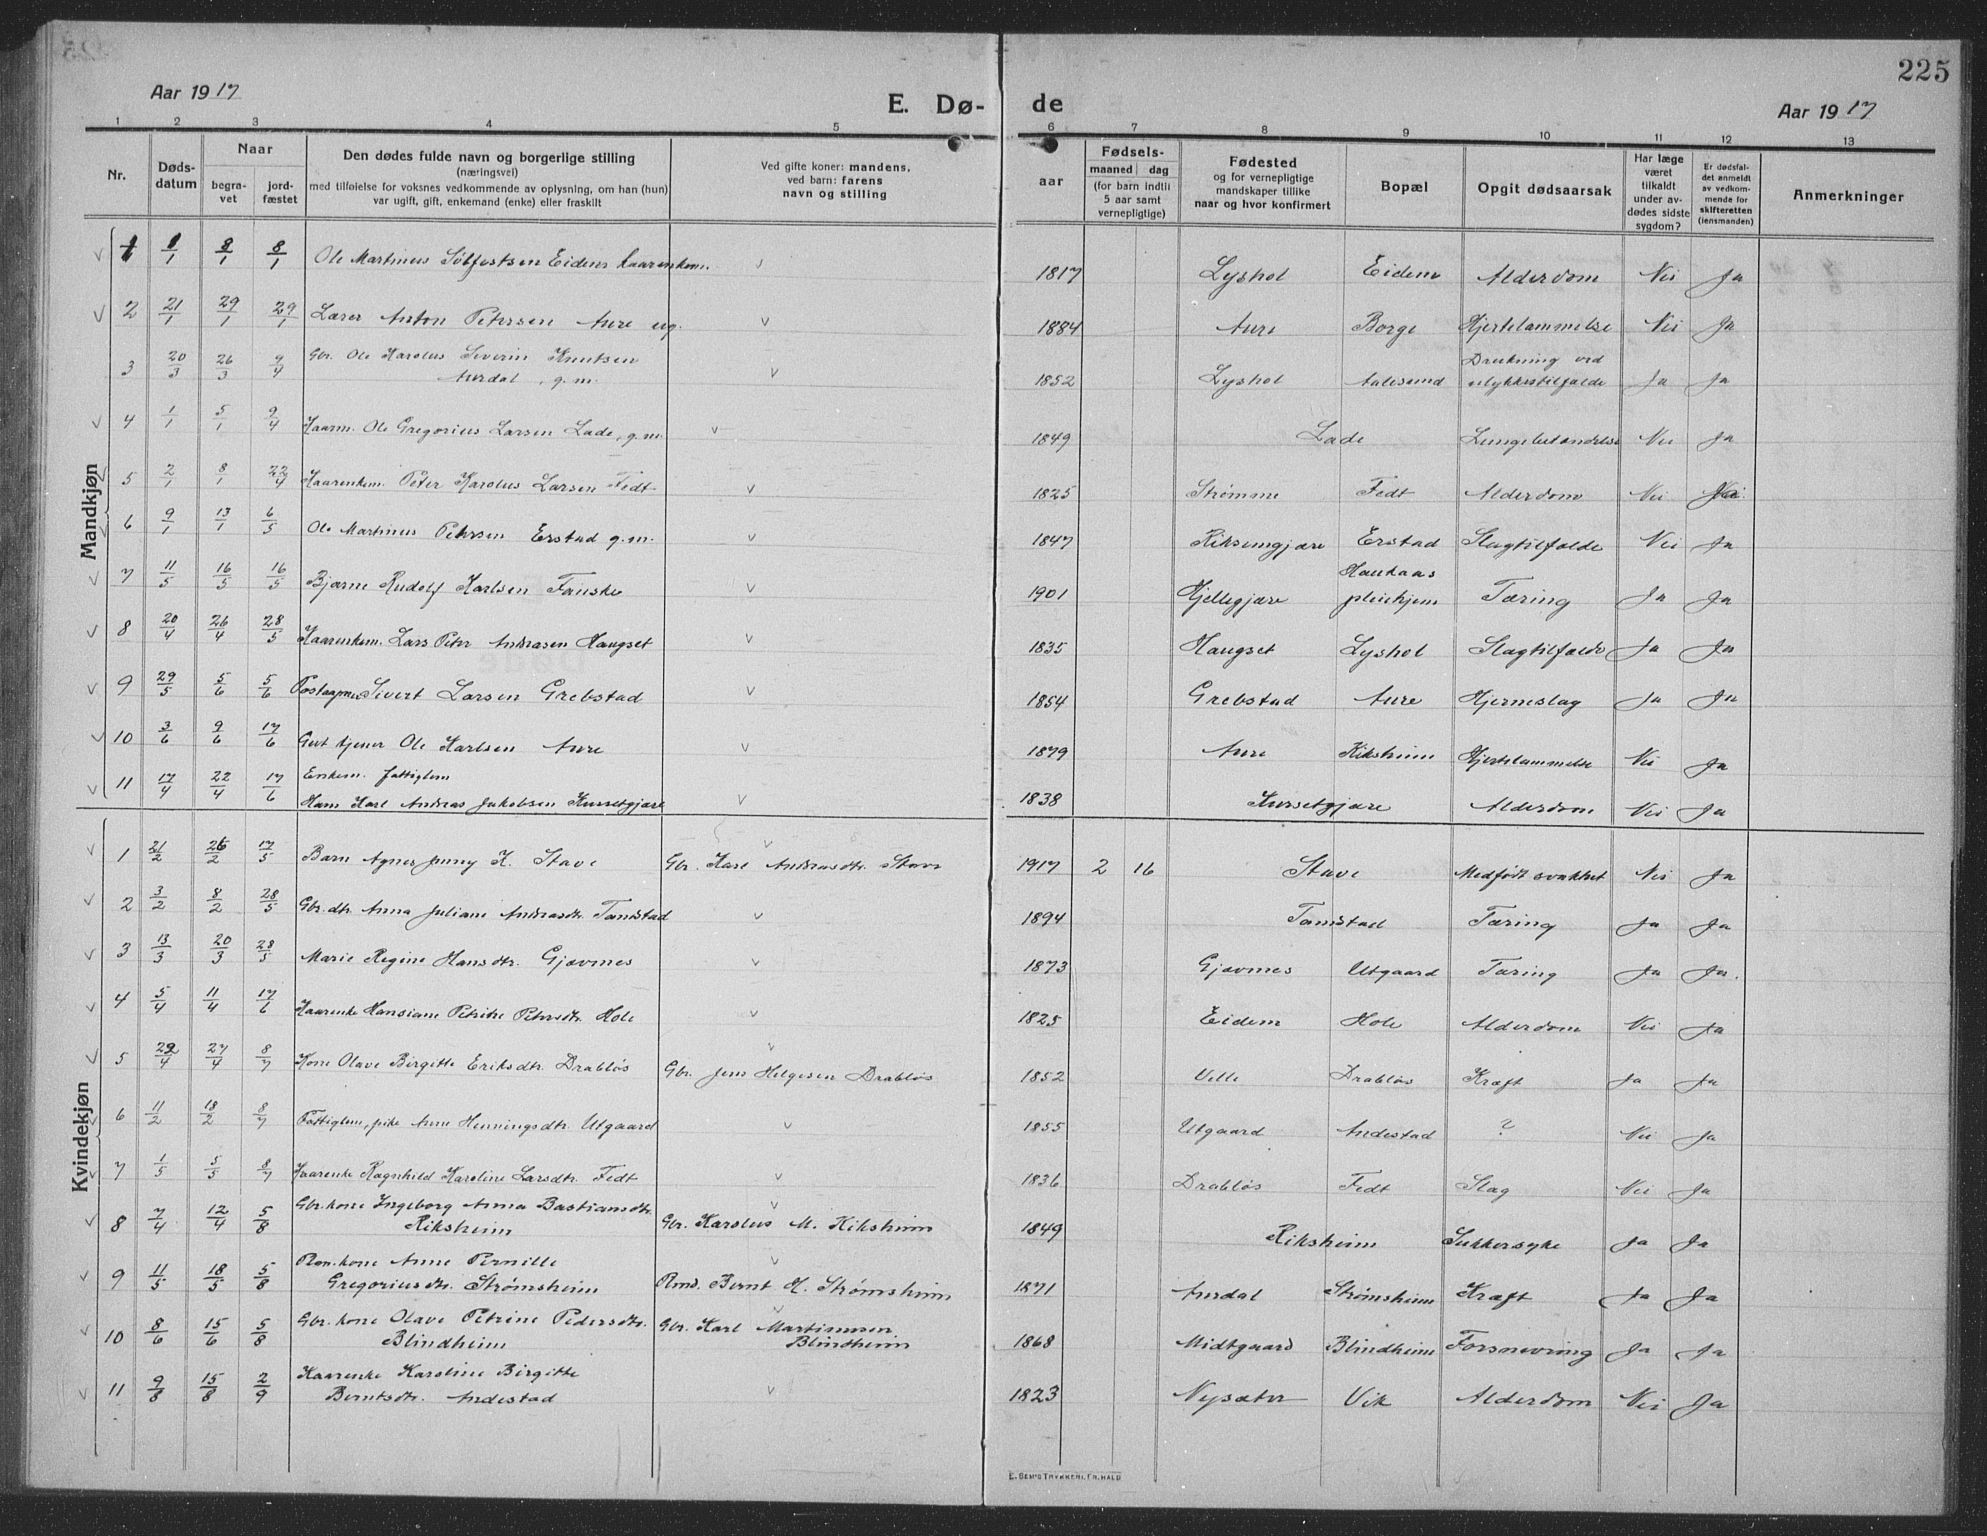 225
Aar 1917
E. Dø-
de
Aar 1917
1 2 3 4 5 6 7 8 9 10 11 12 13
Nr.
Døds-
datum
Naar
begra-
vet
jord-
fæstet
Den dødes fulde navn og borgerlige stilling
(næringsvei)
med tilføielse for voksnes vedkommende av oplysning, om han (hun)
var ugift, gift, enkemand (enke) eller fraskilt
Ved gifte koner: mandens,
ved barn: farens
navn og stilling
Fødsels-
aar
maaned dag
(for barn indtil
5 aar samt
vernepligtige)
Fødested
og for vernepligtige
mandskaper tillike
naar og hvor konfirmert
Bopæl
Opgit dødsaarsak
Har læge
været
tilkaldt
under av-
dødes sidste
sygdom?
Er dødsfal-
det anmeldt
av vedkom-
mende for
skifteretten
(lensmanden)
Anmerkninger
Mandkjøn
1 1/1 8/1 8/1 Ole Martinus Sølfestsen Eidem kaarenkem. 1817 Lyshol Eidem Alderdom Nei Ja
2 21/1 29/1 29/1 Lærer Anton Petersen Aure ug. 1884 Aure Borge Hjertelammelse Nei Ja
3 20/3 26/3 9/4 Gbr. Ole Karolus Severin Knutsen
Aurdal, g.m. 1852 Lyshol Aalesund Drukning ved
ulykkestilfælde Ja Ja
4 1/1 5/1 9/4 Kaarm. Ole Gregorius Larsen Lade, g.m. 1849 Lade Lungebetændelse Nei Ja
5 2/1 8/1 22/4 Kaarenkem. Peter Karolus Larsen Fedt 1825 Strømme Fedt Alderdom Nei
6 9/1 13/1 6/5 Ole Martinus Petersen Erstad g.m. 1847 Riksemgjære Erstad Slagtilfælde Nei Ja
7 11/5 16/5 16/5 Bjarne Rudolf Karlsen Fauske 1901 Hjellegjære Haukaas
pleiehjem Tæring Ja Ja
8 20/4 26/4 28/5 Kaarenkem. Lars Peter Andreasen Haugset 1835 Haugset Lyshol Slagtilfælde Ja Ja
9 29/5 5/6 5/6 Postaapner Sivert Larsen Grebstad 1854 Grebstad Aure Hjerneslag Ja Ja
10 3/6 9/6 17/6 Gut tjener Ole Karlsen Aure 1879 Aure Riksheim Hjertelammelse Nei Ja
11 17/4 22/4 17/6 Enkem. fattiglem
Hans Karl Andreas Jakobsen Kursetgjære 1838 Kursetgjære Alderdom Nei Ja
Kvindekjøn
1 21/2 26/2 17/5 Barn Agnes Jenny K. Stave Gbr. Karl Andreasdtr. Stave 1917 2 16 Stave Medfødt svakhet Nei Ja
2 3/2 8/2 28/5 Gbr.dtr. Anna Juliane Andreasdtr. Tomstad 1894 Tomstad Tæring Ja Ja
3 13/3 20/3 28/5 Marie Regine Hansdtr. Gjævnes 1873 Gjævnes Utgaard Tæring Ja Ja.
4 5/4 11/4 17/6 Kaarenke Hansiane Petrike Petersdtr. Hole 1825 Eidem Hole Alderdom Nei Ja
5 22/4 27/4 8/7 Kone Olave Birgitte Eriksdtr. Drabløs Gbr. Jens Helgesen Drabløs 1852 Velle Drabløs Kræft Ja Ja
6 11/2 18/2 8/7 Fattiglem, pike Anne Henningsdtr. Utgaard 1855 Utgaard Andestad ? Nei Ja
7 1/5 5/5 8/7 Kaarenke Ragnhild Karoline Larsdtr. Fedt 1836 Drabløs Fedt Slag Nei Ja
8 7/4 12/4 5/8 Gbr.kone Ingeborg Anna Bastiansdtr.
Riksheim Gbr. Karolus M. Riksheim 1849 Riksheim Sukkersyke Ja Ja
9 11/5 18/5 5/8 Rm.kone Anne Pernille
Gregoriusdtr. Strømsheim Rmd. Bernt H. Strømsheim 1871 Aurdal Strømsheim Kræft Ja Ja
10 8/6 15/6 5/8 Gbr.kone Olave Petrine Pedersdtr.
Blindheim Gbr. Karl Martinusen
Blindheim 1868 Midtgaard Blindheim Forsnevring Ja Ja
11 9/8 15/8 2/9 Kaarenke Karoline Birgitte
Berntsdtr. Andestad 1823 Nysæter Vik Alderdom Nei Ja
E. SEM'S TRYKKERI. FR.HALD